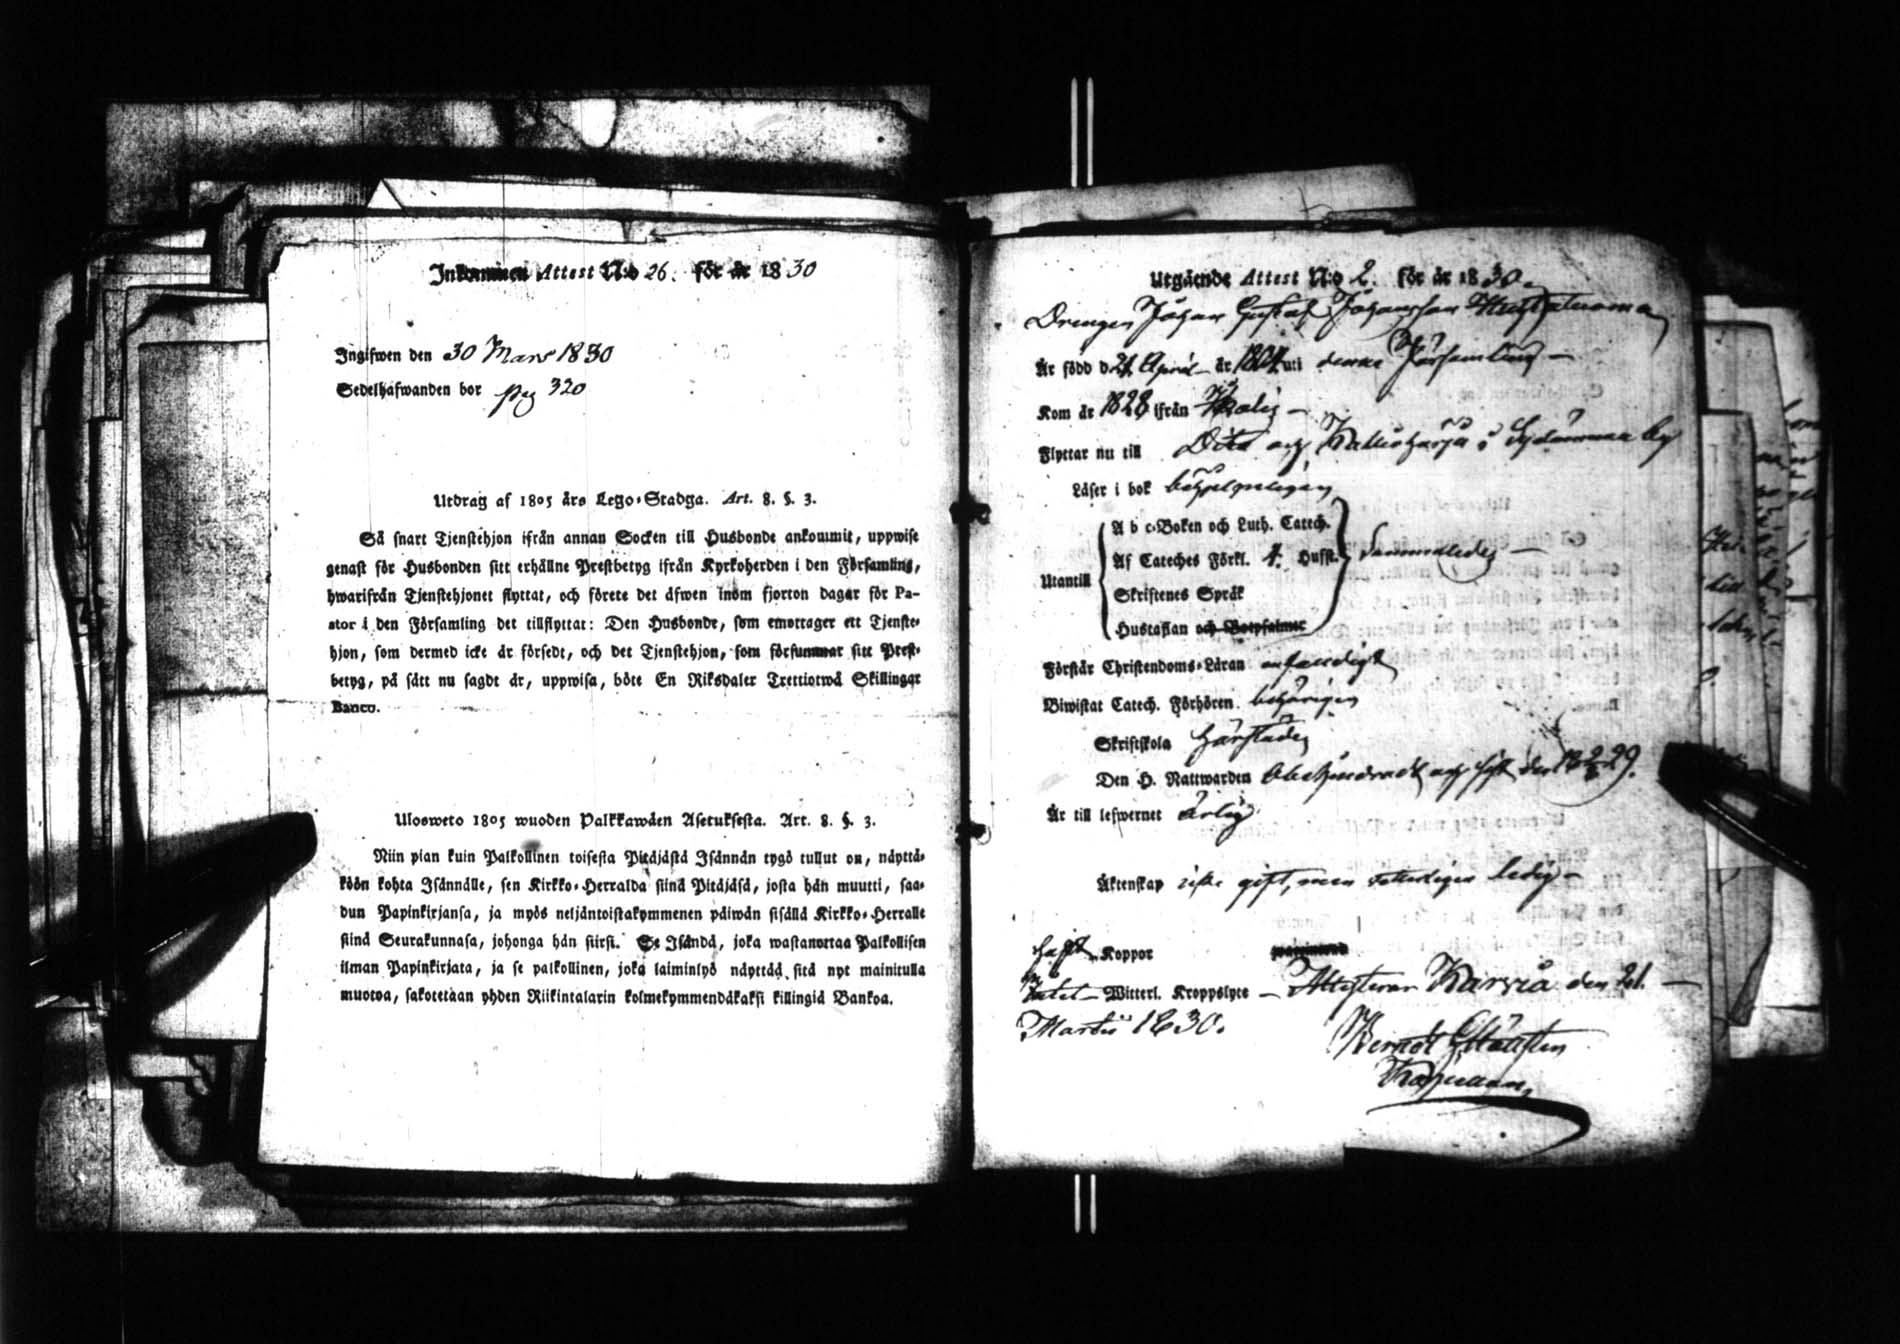 Inkommen Attest N:o 26. för år 1830
Ingifwen den 30 Mars 1830
Sedelhafwanden bor pag 320
Utdrag af 1805 års Lego-Stadga. Art. 8. §. 3.
Så snart Tjenstehjon ifrån annan Socken till Husbonde ankommit, uppwise
genast för Husbonden sitt erhållne Prestbetyg ifrån Kyrkoherden i den Församling,
hwarifrån Tjenstehjonet flyttat, och förete det äfwen inom fjorton dagar för Pa-
stor i den Församling det tillflyttat: Den Husbonde, som emottager ett Tjenste-
hjon, som dermed icke är försedt, och det Tjenstehjon, som försummar sitt Prest-
betyg, på sätt nu sagdt är, uppwisa, böte En Riksdaler Trettiotwå Skillingar
Banco.
Ulosweto 1805 wuoden Palkkawäen Asetuksesta. Art. 8. §. 3.
Niin pian kuin Palkollinen toisesta Pitäjästä Isännän tygö tullut on, näyttä-
köön kohta Isännälle, sen Kirkko-Herralda siinä Pitäjäsä, josta hän muutti, saa-
dun Papinkirjansa, ja myös neljäntoistakymmenen päiwän sisällä Kirkko-Herralle
siinä Seurakunnasa, johonga hän siirsi. Se Isändä, joka wastanottaa Palkollisen
ilman Papinkirjata, ja se palkollinen, joka laiminlyö näyttää sitä nyt mainitulla
muotoa, sakotetaan yhden Riikintalarin kolmekymmendäkaksi killingiä Bankoa.
Utgående Attest N:o 2. för år 1830.
Drengen Johan Gustaf Johansson
Är född d 24 April år 1804 uti denna Församling
Kom år 1828 ifrån
Flyttar nu till by
Läser i bok
A b c-Boken och Luth. Catech.
Af Cateches Förkl. 4. Hufst.
Utantill
Skriftenes Språk
Hustaflan och Botpsalmer
Förstår Christendoms-Läran
Biwistat Catech. Förhören behörigen
Skriftskola
Den H. Nattwarden obehindradt och sist den 29.
Är till lefwernet ärlig
Äktenskap icke gift, men ledig
haft Koppor
Witterl. Kroppslyte Attesterar Karvia den 21.
Martii 1830.